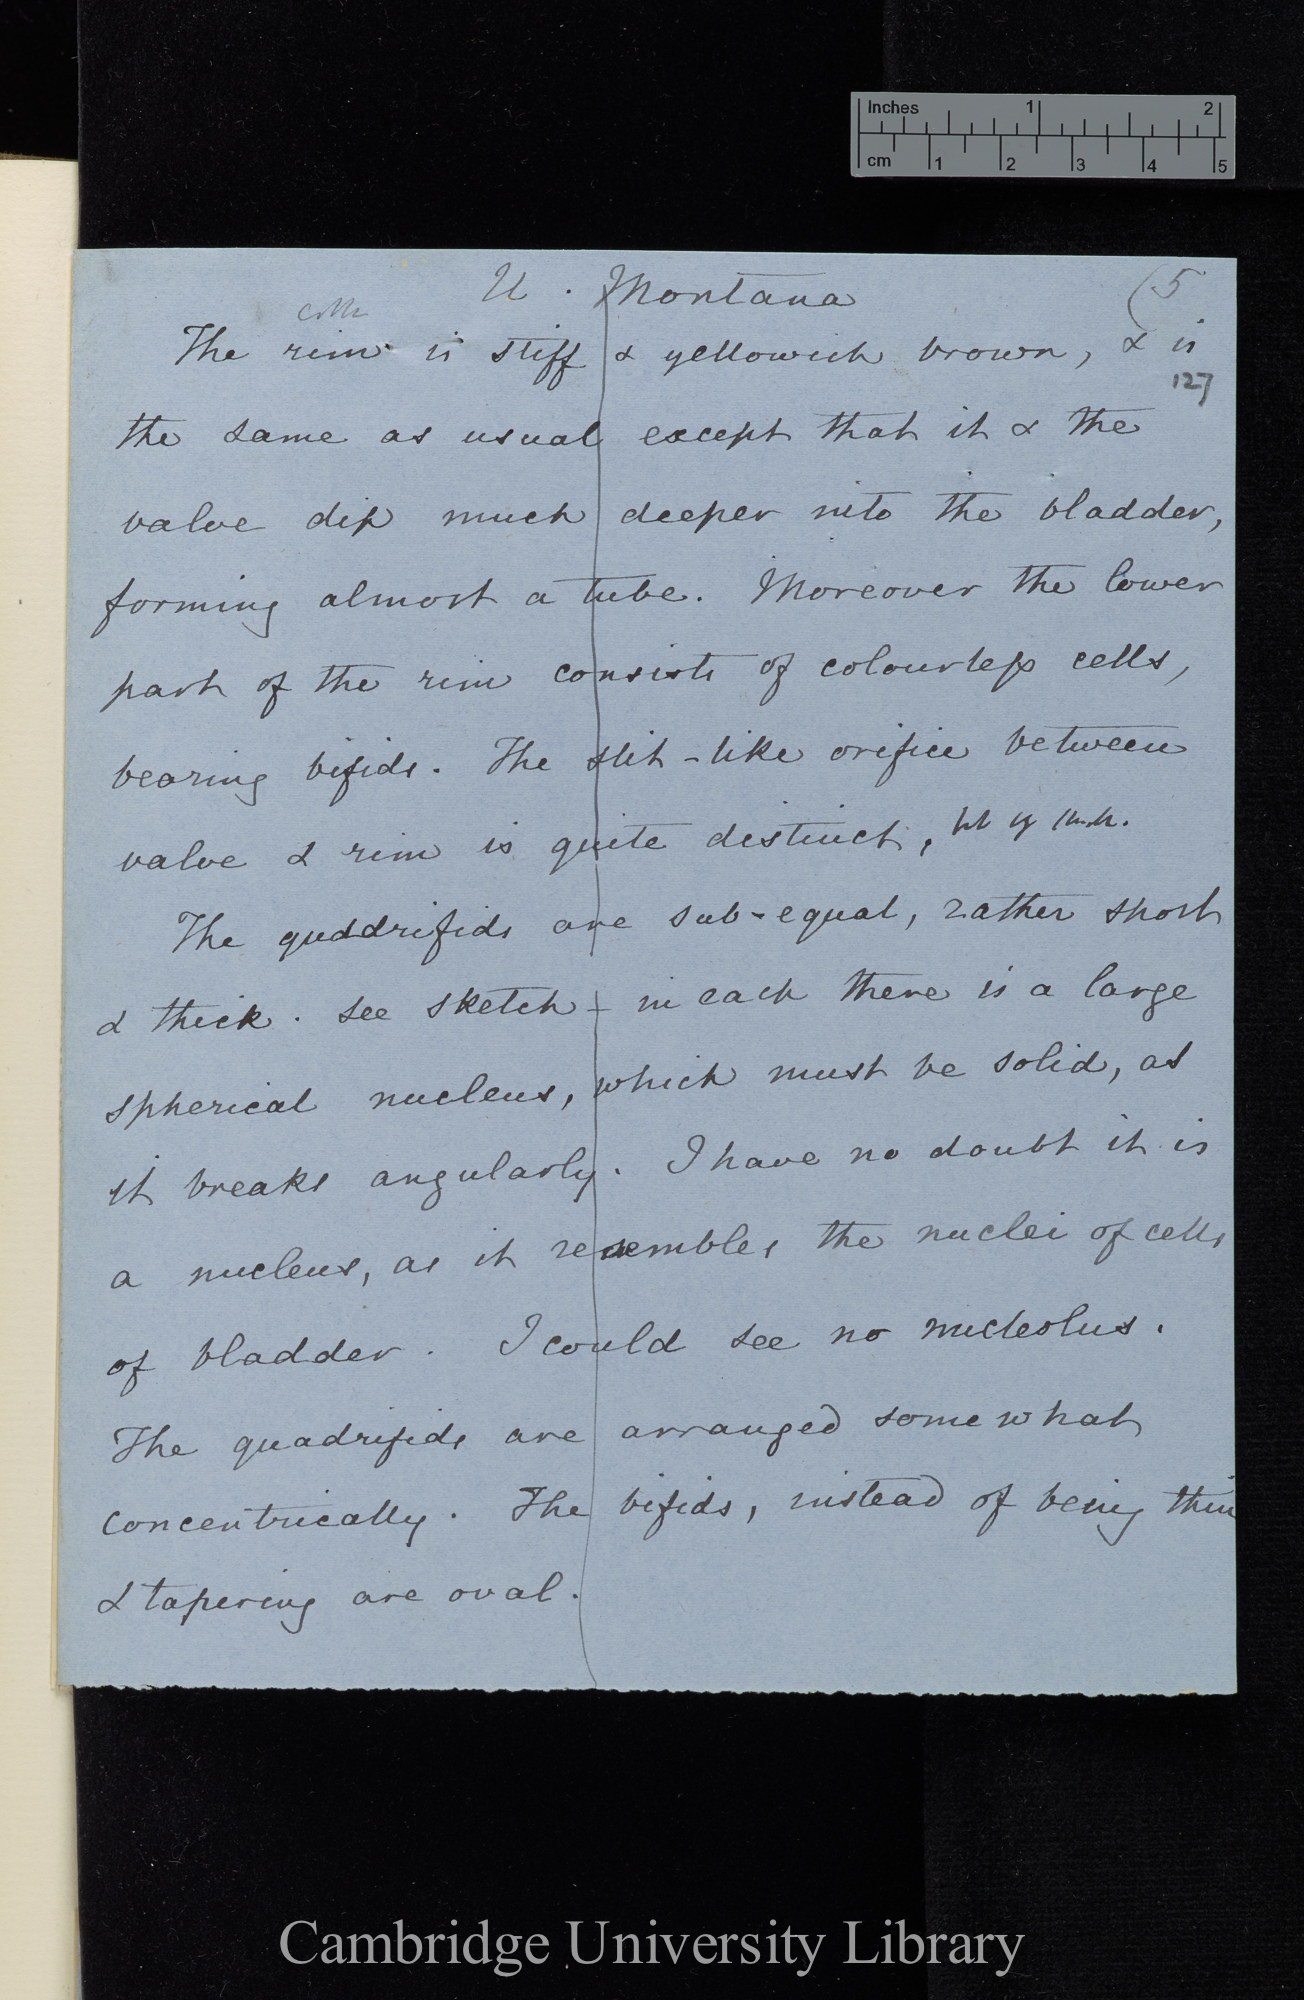 Inches 1 2
cm 1 2 3 4 5
U. Montana (5
The rim is stiff & yellowish brown, & is
127
the same as usual except that it & the
valve dip much deeper into the bladder,
forming almost a tube. Moreover the lower
part of the rim consists of colourless cells,
bearing bifids. The slit-like orifice between
valve & rim is quite distinct,
The quadrifids are sub-equal, rather short
& thick. see sketch - in each there is a large
spherical nucleus, which must be solid, as
it breaks angularly. I have no doubt it is
a nucleus, as it resembles the nuclei of cells
of bladder. I could see no nucleolus.
The quadrifids are arranged somewhat
concentrically. The bifids, instead of being thin
& tapering are oval.
Cambridge University Library